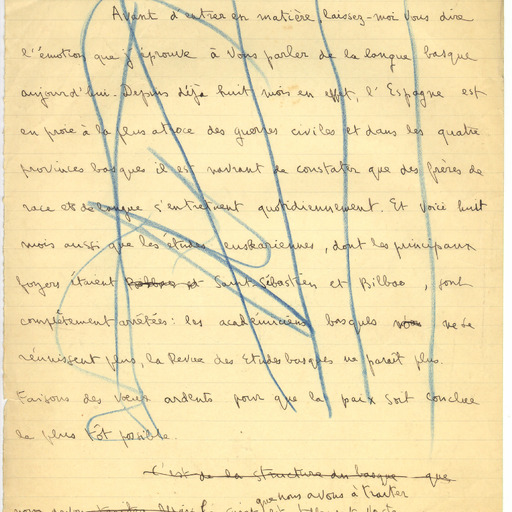 Avant d'entrer en matière, laissez-moi vous dire
l'émotion que j'éprouve à vous parler de la langue basque
aujourd'hui. Depuis déjà huit mois en effet, l'Espagne est
en proie à la plus atroce des guerres civiles et dans les quatre
provinces basques il est navrant de constater que des frères de
race et de langue s'entretuent quotidiennement. Et voici huit
mois aussi que les études euskariennes, dont les principaux
foyers étaient Bilbao et Saint-Sébastien et Bilbao, sont
complètement arrêtées: les académiciens basques ne se
réunissent plus, la Revue des Etudes basques ne paraît plus.
Faisons des vœux ardents pour que la paix soit conclue
le plus tôt possible.
C'est de la structure du basque que
que nous avons à traiter
nous